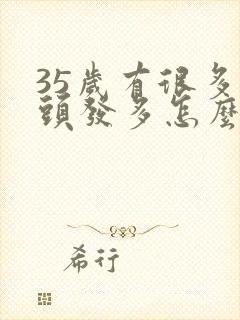 35歲有很多
頭發多怎麼
希行